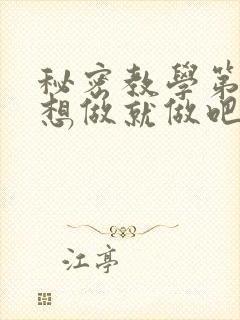 秘密教學第
想做就做吧
江亭